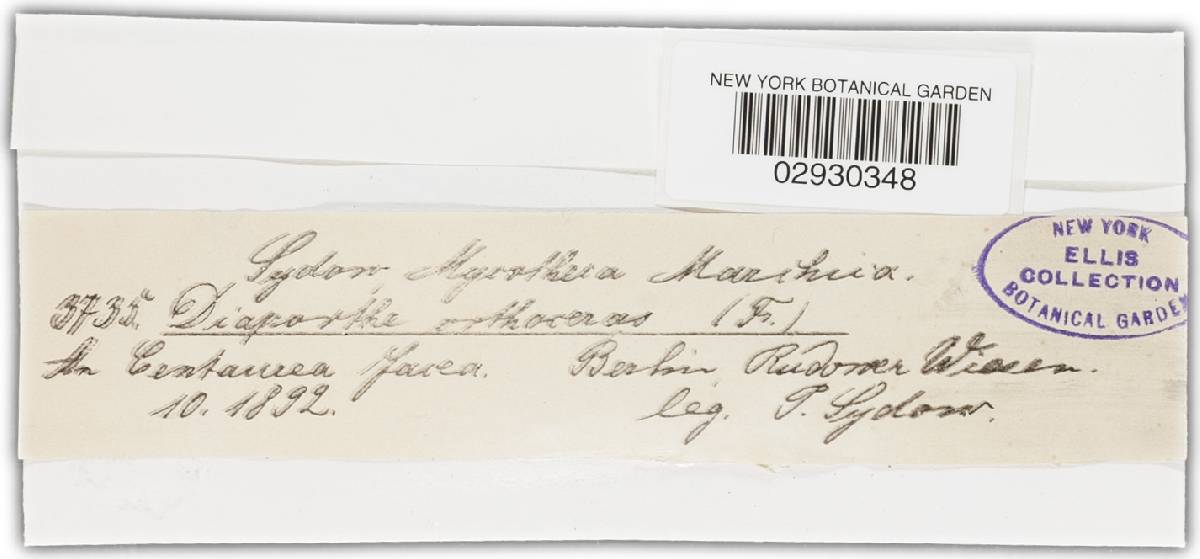 NEW YORK BOTANICAL GARDEN
02930348
Sydow, Mycotheca Marchica.
3735. Diaporthe orthoceras (Fr.)
An Centaurea Jacea. Berlin Rudower Wiesen.
10. 1892. leg. P. Sydow.
NEW YORK
ELLIS
COLLECTION
BOTANICAL GARDEN